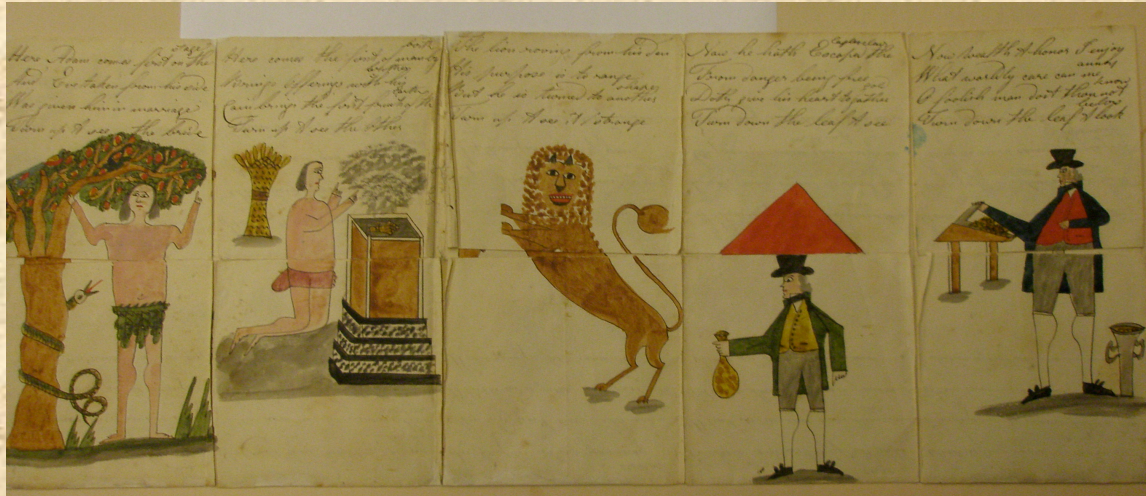 Here Adam comes first on the stage
And Eve taken from his side
Was given him in marriage
Turn up & see the bride
Here comes the first of man by
Brings offerings with his brother
Cain brings the first fruit of the
Turn up & see the other
The lion roving from his den
His purpose is to range
But he is turned to another
Turn up & see it strange
Now he hath Escapd the Eagles claw
From danger being free
Doth give his heart to
Turn down the leaf & see
Now wealth & honor I enjoy
What worldly care can me annoy
O foolish man dost thou not know
Turn down the leaf & look below